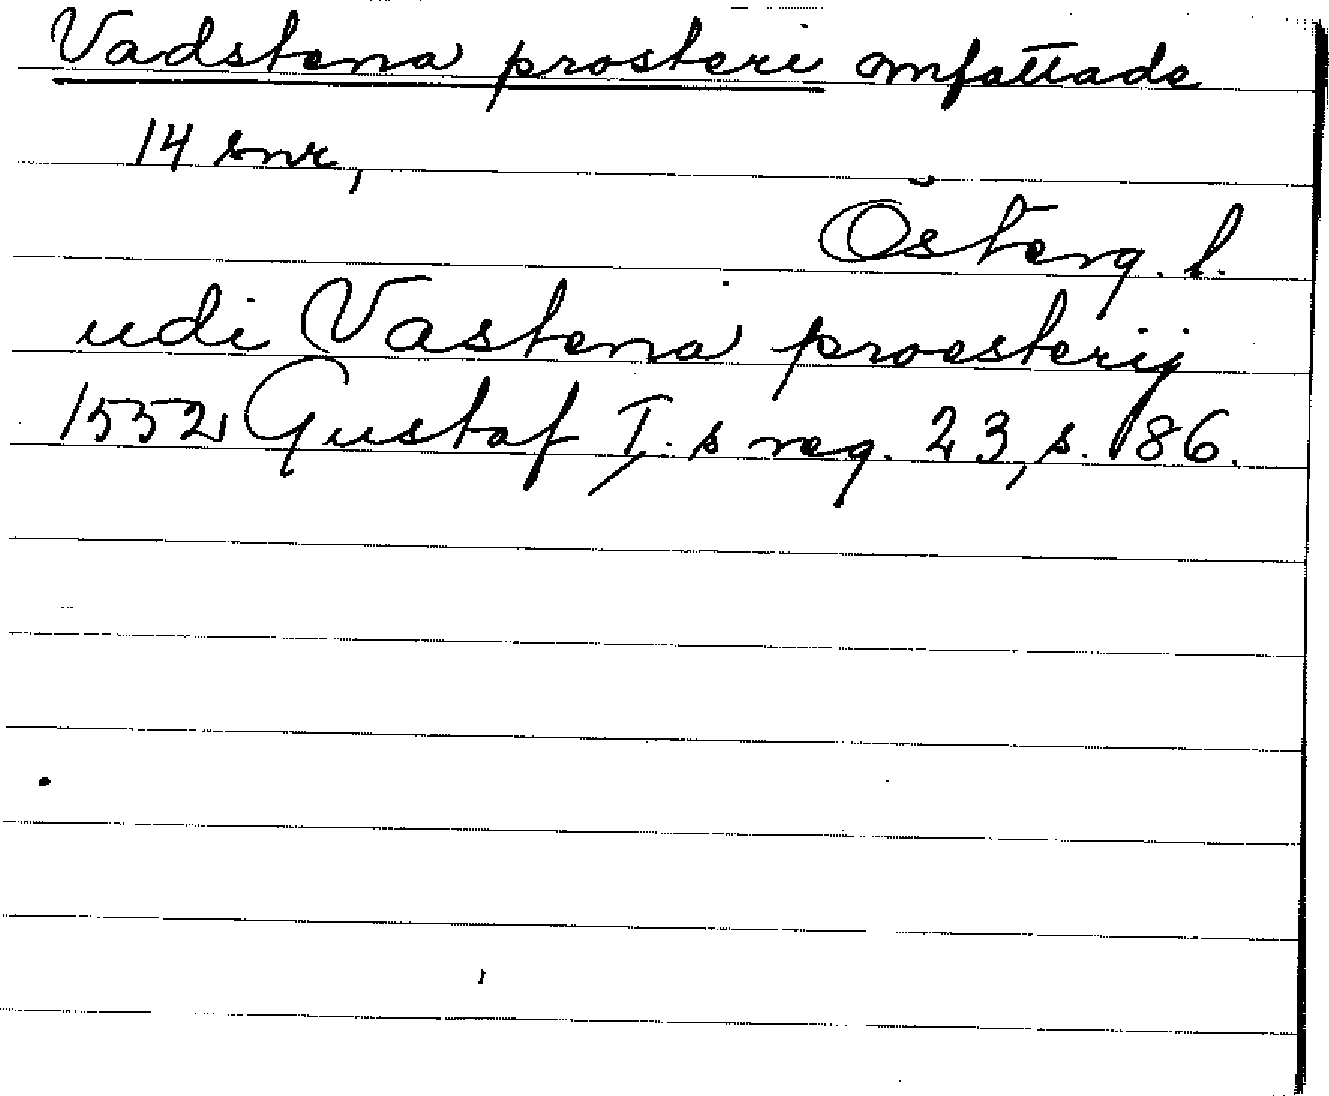 Vadstena prosteri omfattade
14 snr,
Österg. l.
udi Vastena proesterij
1552 Gustaf I:s reg. 23, s. 186.